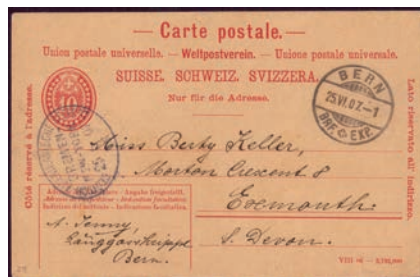 — Carte postale. —
Union postale universelle. — Weltpostverein. — Unione postale universale.
SUISSE. SCHWEIZ. SVIZZERA.
Nur für die Adresse.
Côté réservé à l'adresse.
Lato riservato all' indirizzo.
10
BERN
25.VI.07.-1
BRF. EXP.
Miss Berty Keller,
Morton Crescent 8
Exmouth
S. Devon.
A. Jenny,
Bern.